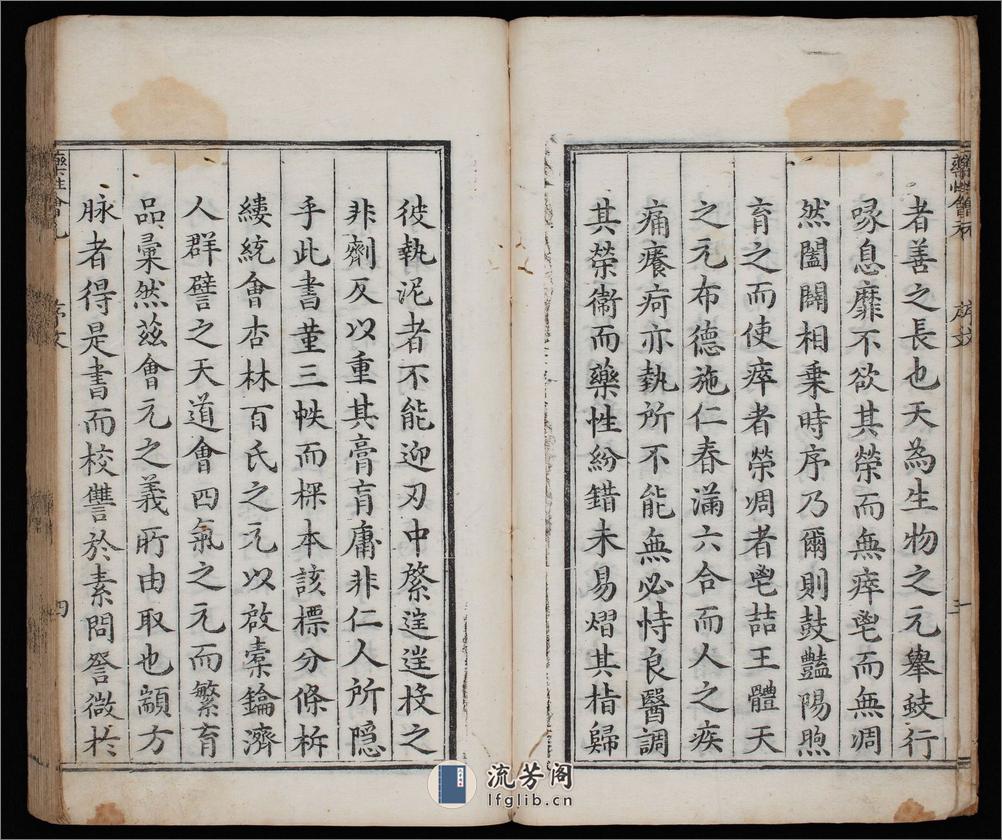 者善之長也天為生物之元舉蚑行
喙息靡不欲其榮而無瘁鬯而無凋
然闔闢相乗時序乃爾則鼓豔陽煦
育之而使瘁者榮凋者鬯喆王體天
之元布德施仁春滿六合而人之疾
痛癢疴亦執所不能無必恃良醫調
其榮衛而藥性紛錯未易熠其㫖歸
彼執泥者不能迎刃中綮逞逞投之
非劑反以重其膏肓庸非仁人所隱
乎此書董三帙而樑本該標分條析
縷統會杏林百氏之元以啟橐鑰濟
人群譬之天道會四氣之元而繁育
品彙然茲會元之義所由取也顓方
脉者得是書而校讐於素問發微於
藥性會元
序文
四
流芳阁
lfglib.cn